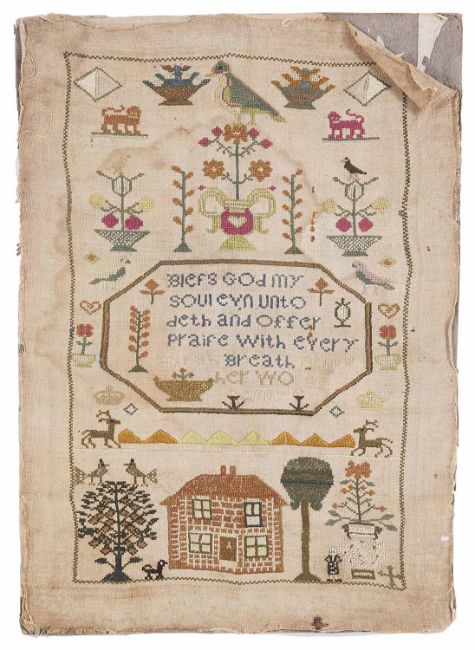 Blefs God my
soul evn unto
deth and offer
praife with eyery
Breath
her wor